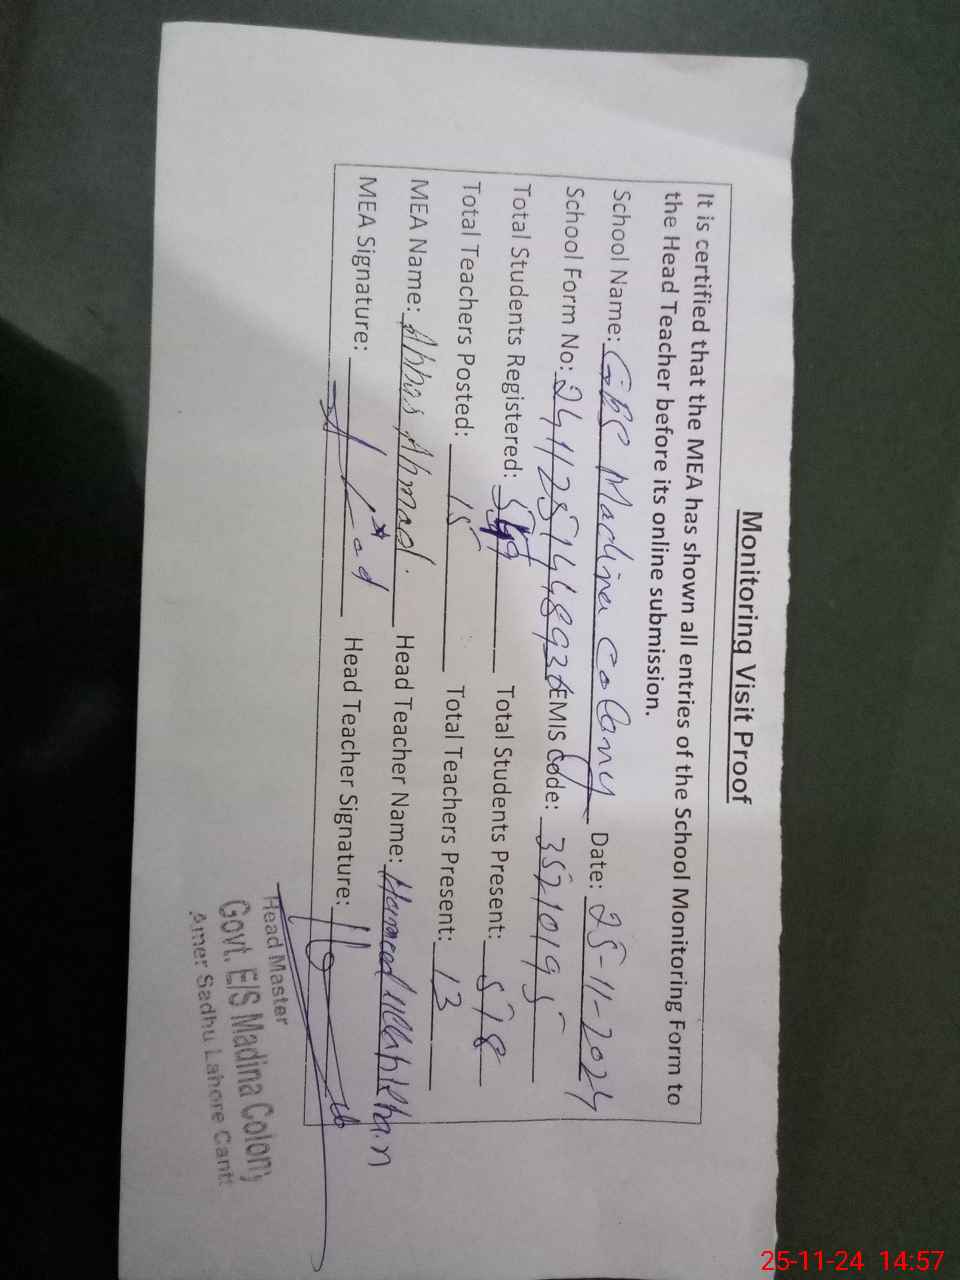 Monitoring Visit Proof
It is certified that the MEA has shown all entries of the School Monitoring Form to
the Head Teacher before its online submission.
School Name: GBS Madina Colony Date: 25-11-2024
School Form No: EMIS Code: 35210195
Total Students Registered: Total Students Present: 518
Total Teachers Posted: 15 Total Teachers Present: 13
MEA Name: Abbas Ahmad. Head Teacher Name: Hameed Ullah Khan
MEA Signature: Head Teacher Signature:
Head Master
Govt. E/S Madina Colony
Amer Sadhu Lahore Cantt
25-11-24 14:57